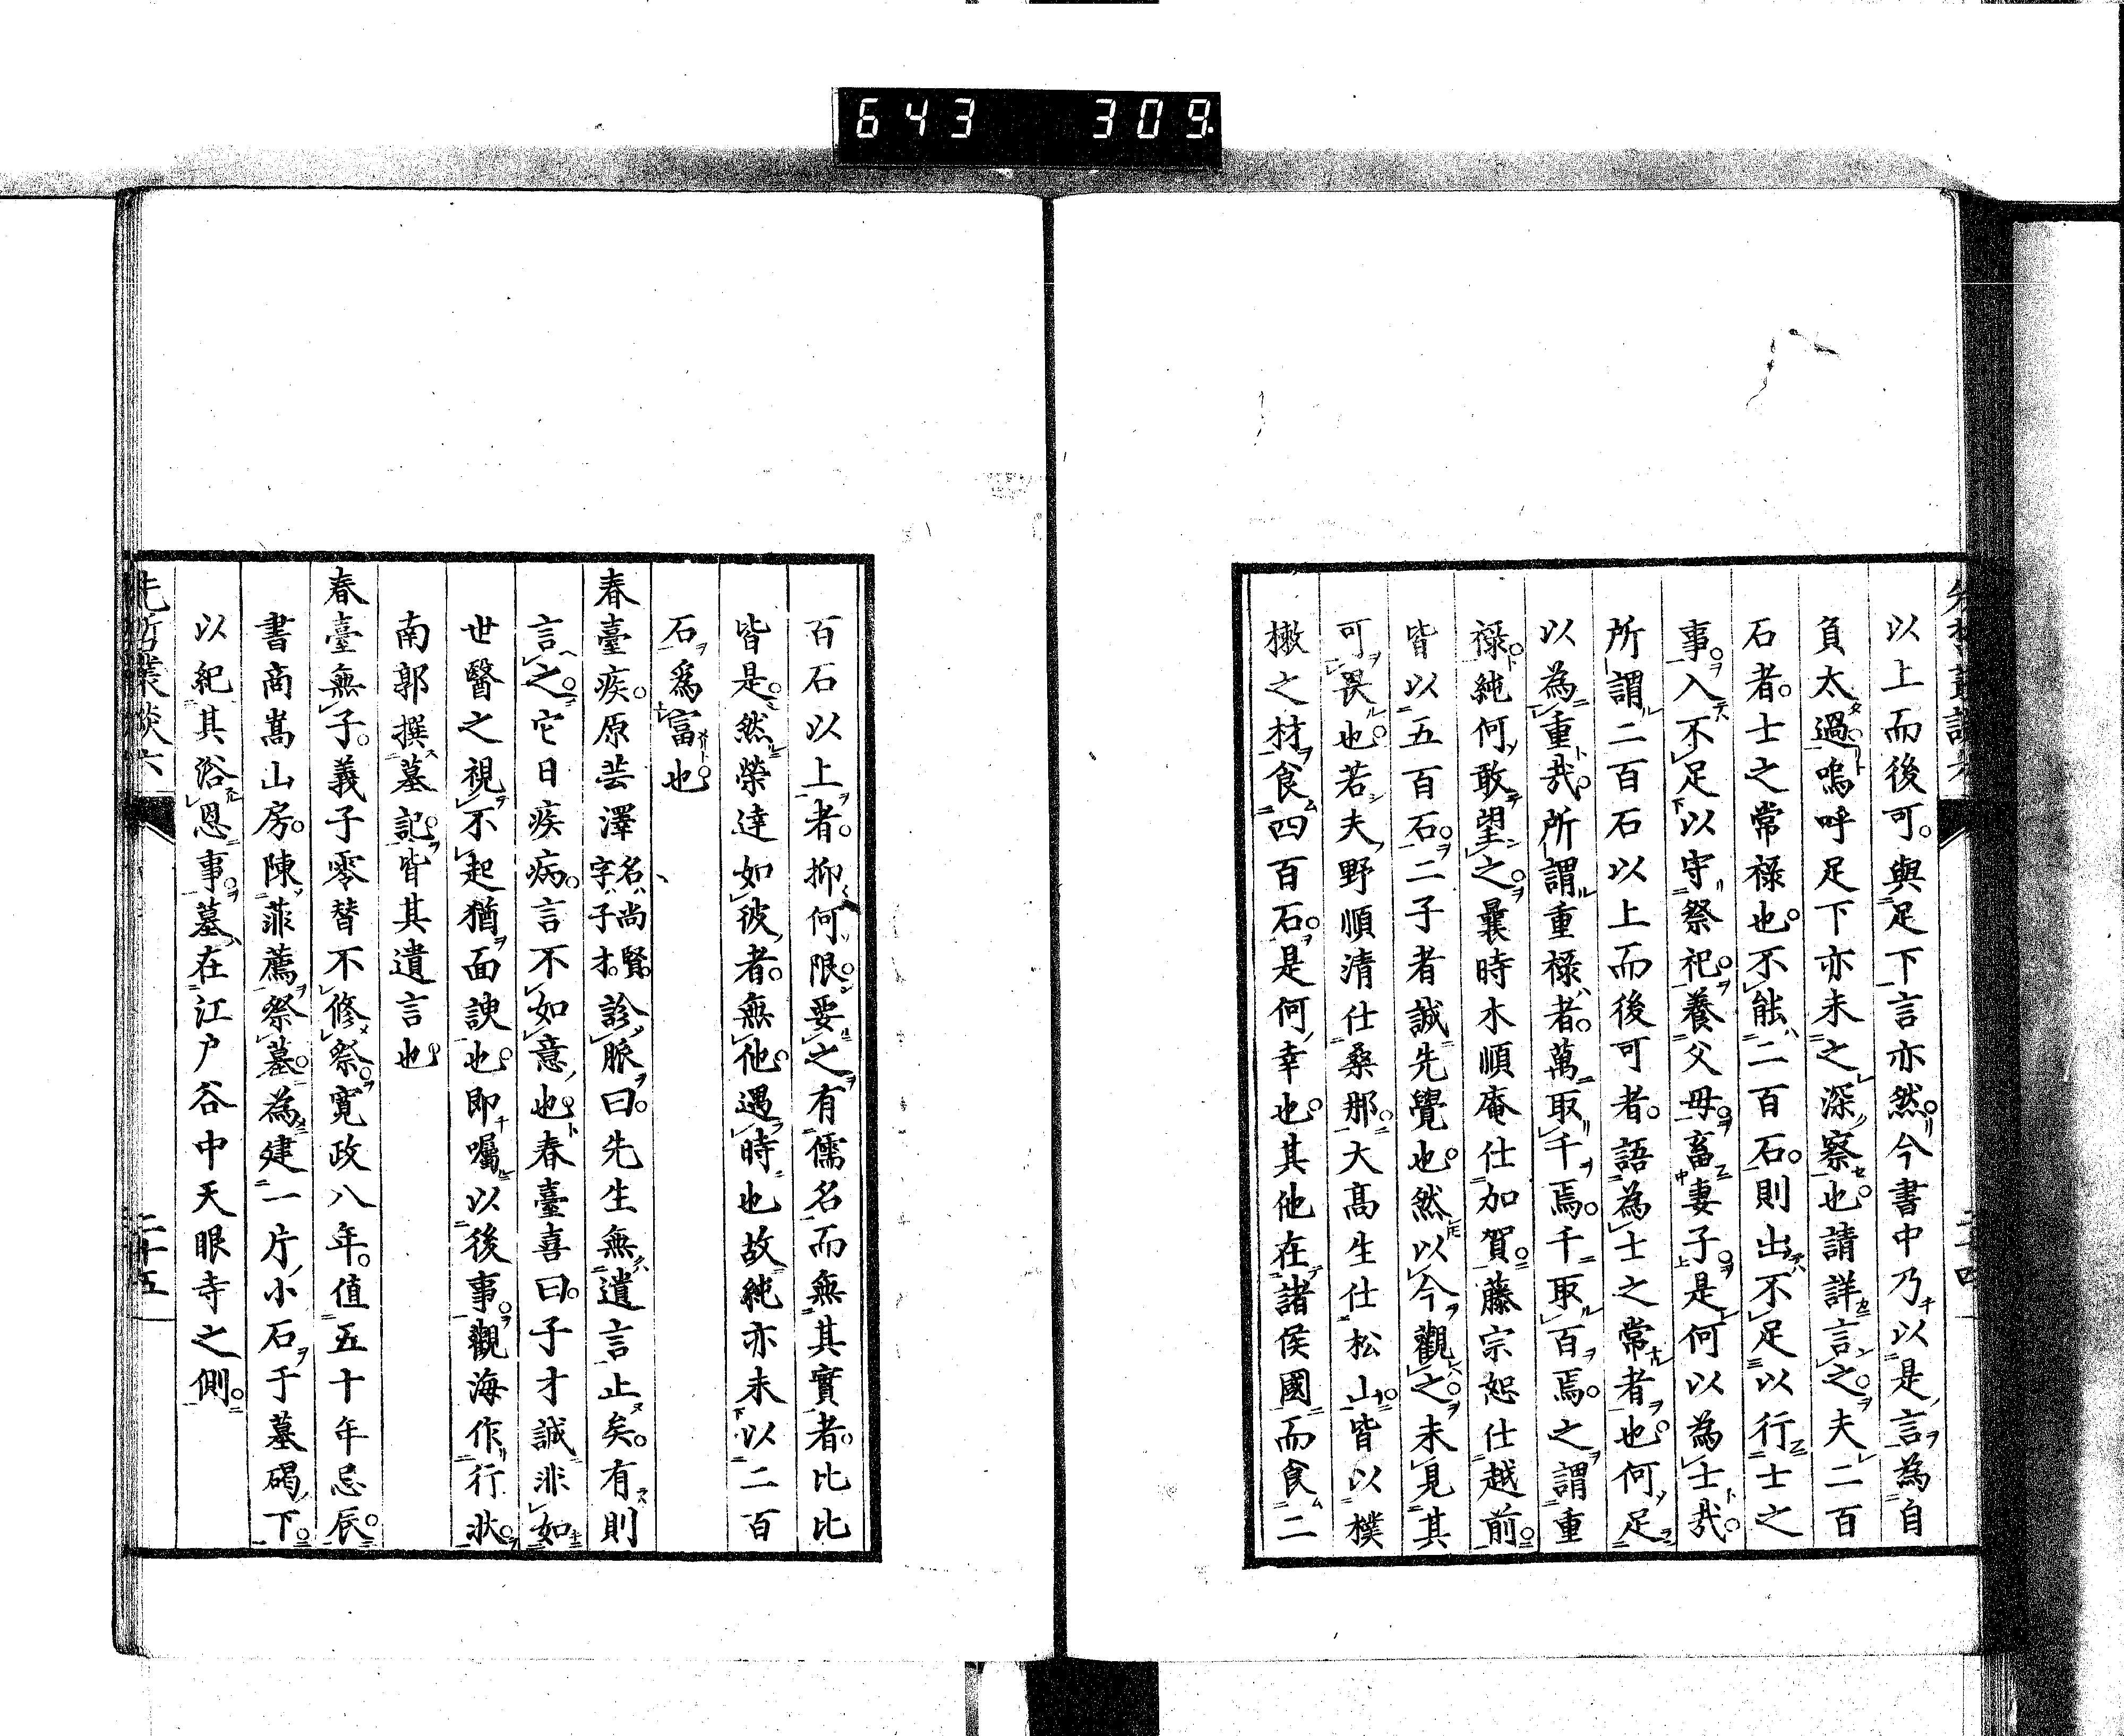 643 309
以上而後可。與足下言亦然。今書中乃以是言為自
負太過。嗚呼足下亦未之深察也。請詳言之。夫二百
石者。士之常禄也。不能二百石。則出不足以行士之
事。入不足以守祭祀。養父母。畜妻子。是何以為士哉。
所謂二百石以上而後可者。語為士之常者也。何足
以為重哉。所謂重禄者。萬取千焉。千取百焉。之謂重
禄。純何敢望之。曩時木順庵仕加賀。藤宗恕仕越前。
皆以五百石。二子者誠先覺也。然以今觀之。未見其
可畏也。若夫野順清仕桑那。大高生仕松山。皆以樸
樕之材。食四百石。是何幸也。其他在諸侯國而食二
百石以上者。抑何限。要之有儒名而無其實者。比比
皆是。然榮達如彼者。無他。遇時也。故純亦未以二百
石爲富也
春臺疾。原芸澤名尚賢。字子才。診脈曰。先生無遺言止矣。有則
言之。它日疾病。言不如意也。春臺喜曰。子才誠非如
世醫之視不起猶面諛也。即囑以後事。觀海作行狀。
南郭撰墓記。皆其遺言也
春臺無子。義子零替不修祭。寛政八年。值五十年忌辰。
書商嵩山房。陳菲薦祭墓。為建一片小石于墓碣下。
以紀其浴恩事。墓在江戸谷中天眼寺之側。
先哲叢談六 二十五